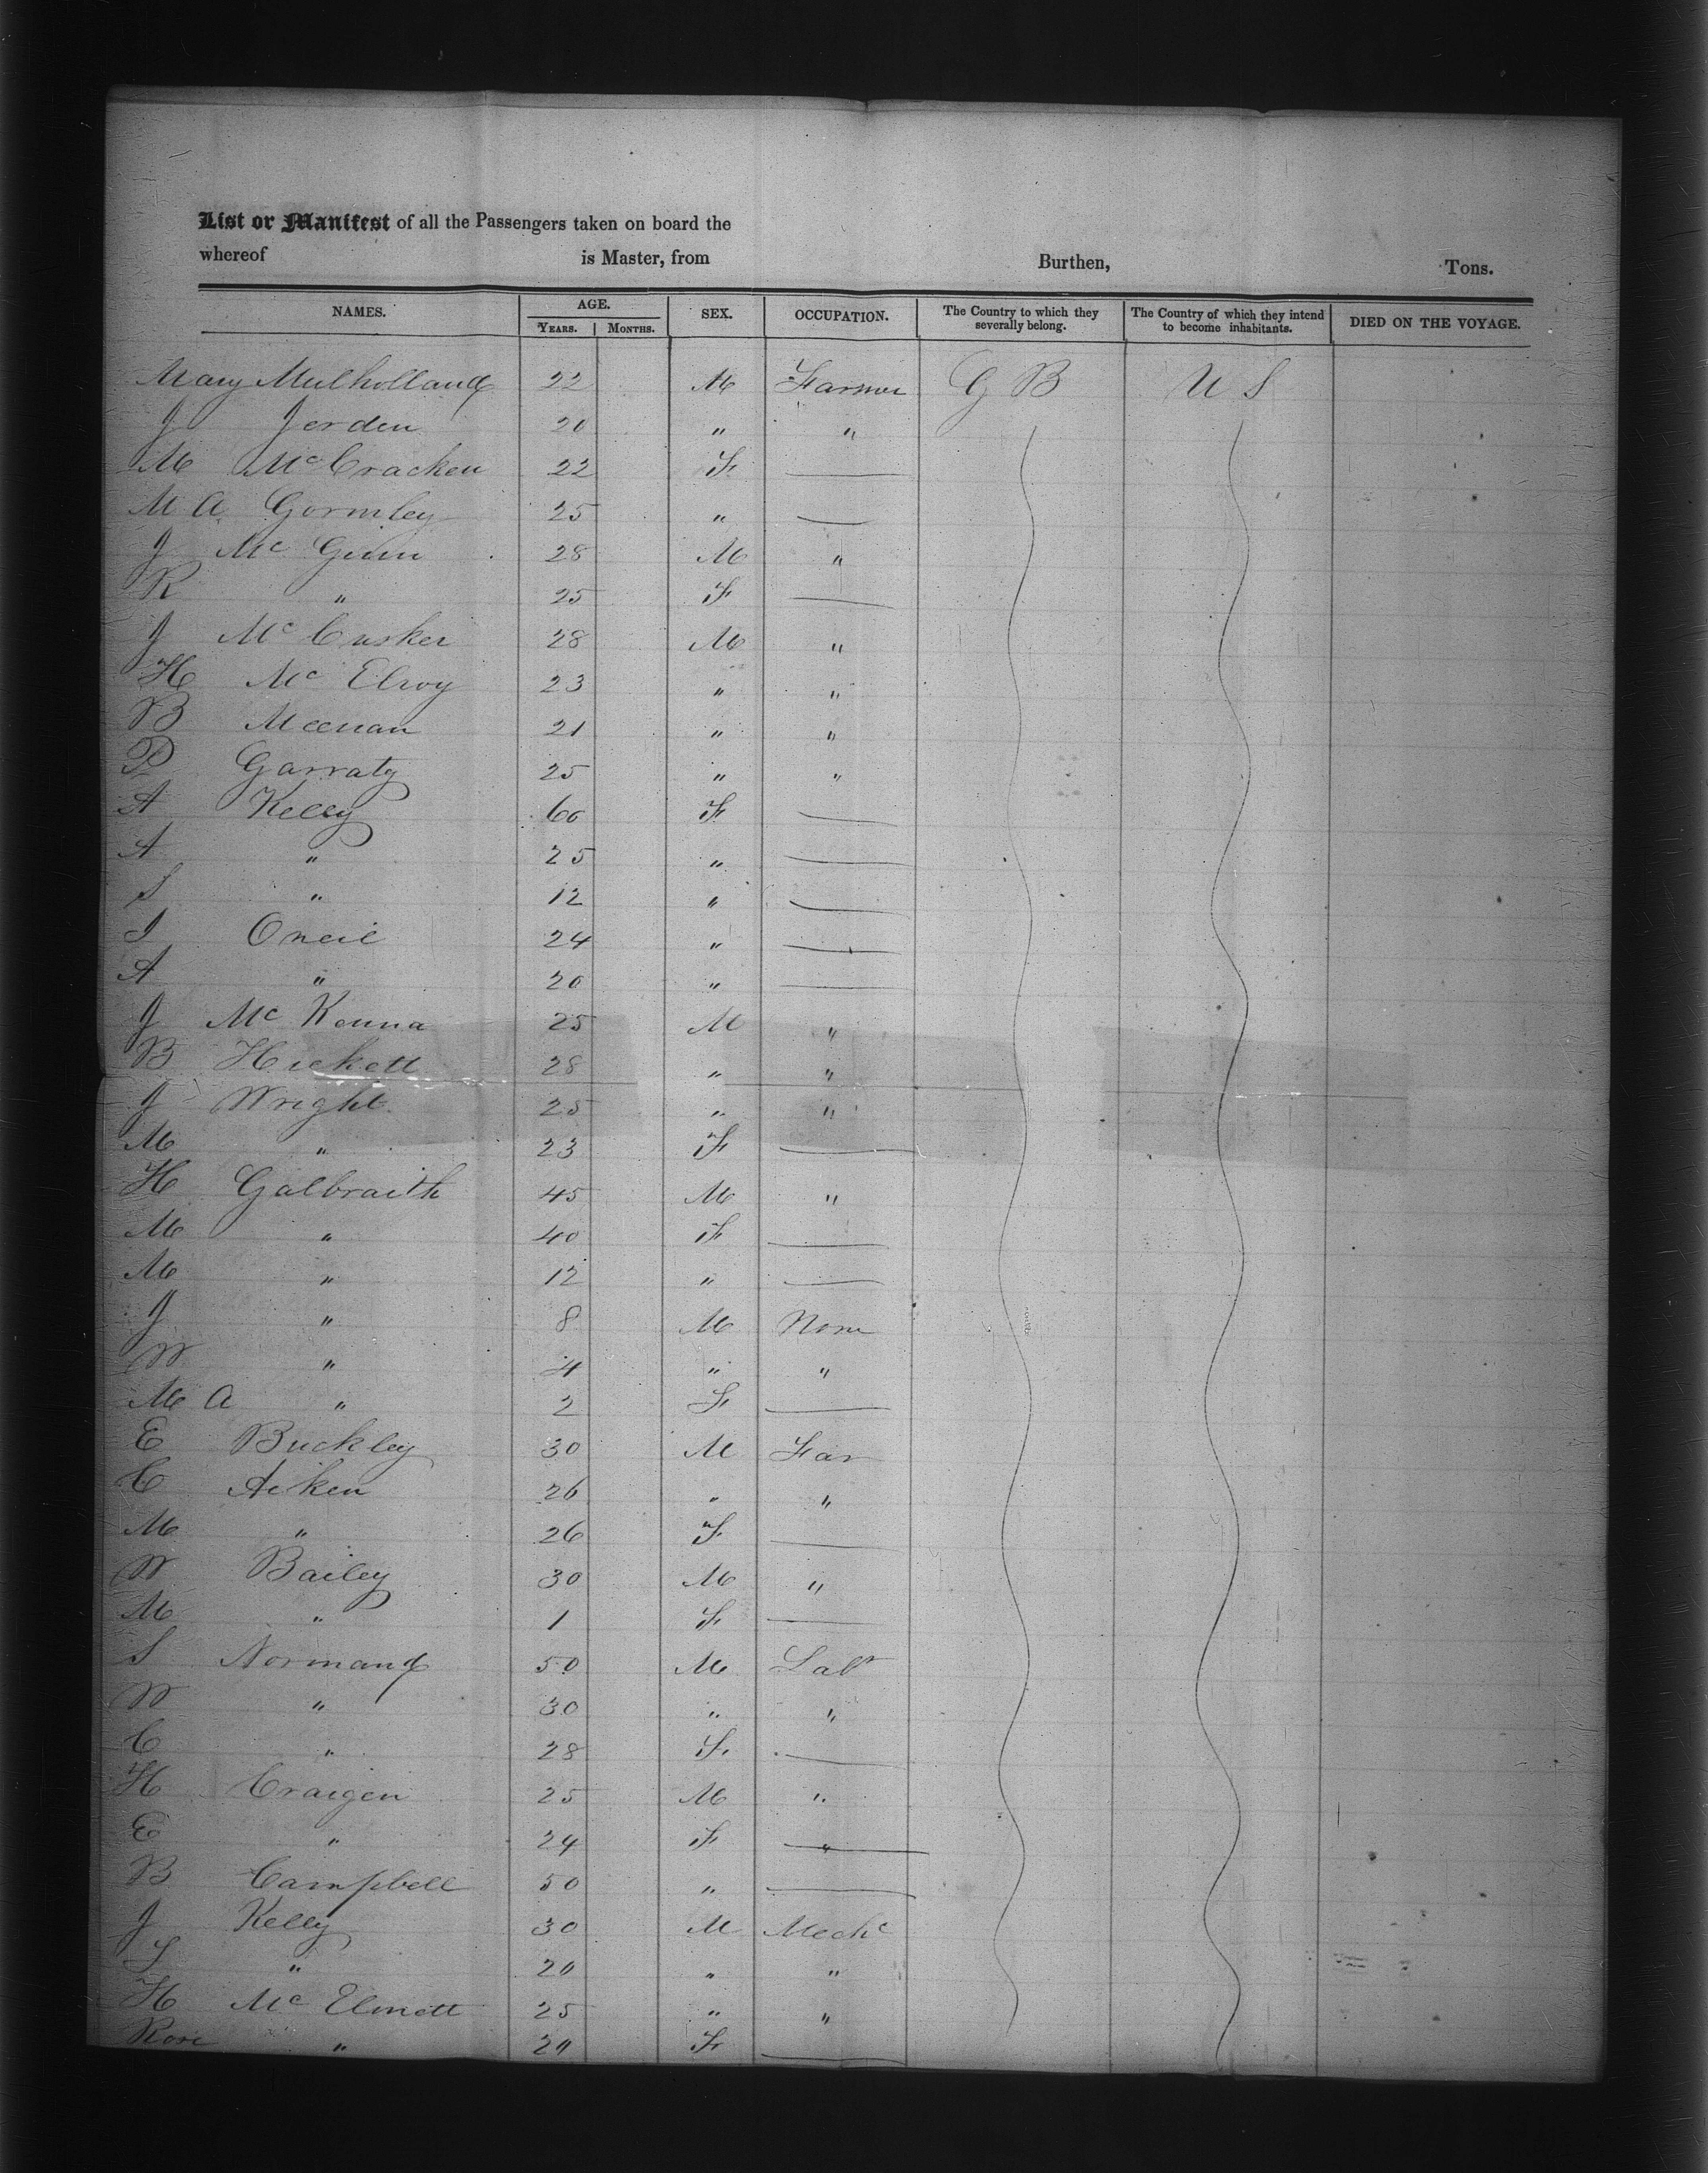 List or Manifest of all the Passengers taken on board the
whereof is Master, from Burthen, Tons.
NAMES. AGE. SEX. OCCUPATION. The Country to which they severally belong. The Country of which they intend to become inhabitants. DIED ON THE VOYAGE.
YEARS. MONTHS.
Mary Mulholland 22 M Farmer G B U S
J Jorden 20 " "
M McCracken 22 F
M A Gormley 25 "
J Mc Ginn 28 M "
R " 25 F
J McCusker 28 M "
H Mc Elroy 23 " "
B Meenan 21 " "
P Garraty 25 " "
A Kelly 60 F
A " 25 "
S " 12 "
I Oneil 24 "
A " 20 "
J Mc Kenna 25 M "
B Hickett 28 " "
J Wright 25 " "
M " 23 F
H Galbraith 45 M "
M " 40 F
M " 12 "
J " 8 M None
W " 4 " "
M A " 2 F
E Buckley 30 M Far
C Aiken 26 " "
M " 26 F
W Bailey 30 M "
M " 1 F
S Normand 50 M Labr
W " 30 " "
C " 28 F
H Craigen 25 M "
E " 24 F "
B Campbell 50 "
J Kelly 30 M Mechc
S " 20 " "
H Mc Elmott 25 " "
Rose " 20 F